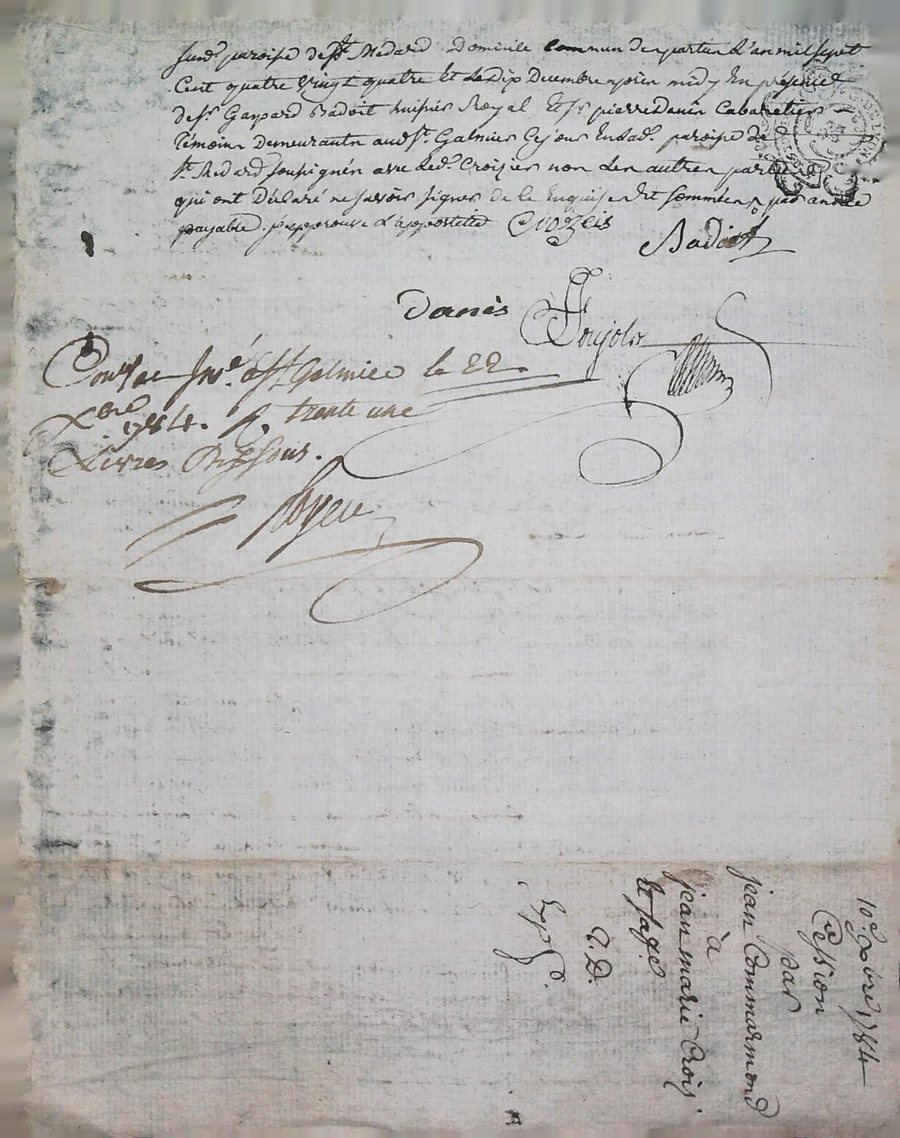 susd. paroisse de St. Medard Domicile commun de partie L'an mil sept
Cent quatre vingt quatre Et Le dix Decembre après midy En presence
de Sr. Gaspard Badoit huissier Royal Et Sr. pierre danis Cabaretier
Témoins Demeurants aud. St. Galmier paroisse de
St. Medard soussignés avec led. Croisier non Les autres parties
qui ont Déclaré ne savoir signer de le Enquis et sommées par année
payable. j'approuve L'appostille Crozcis
Badoit
Danès
Poujols
Con.lé Inv.é à St. Galmier le 22
Xbre 1784. R. trente une
Livres Dix sous.
Royere
10e. Xbre. 1784
Cession
par
jean Commarmond
à
jean marie Crois.
et sa
E. D.
Exp.